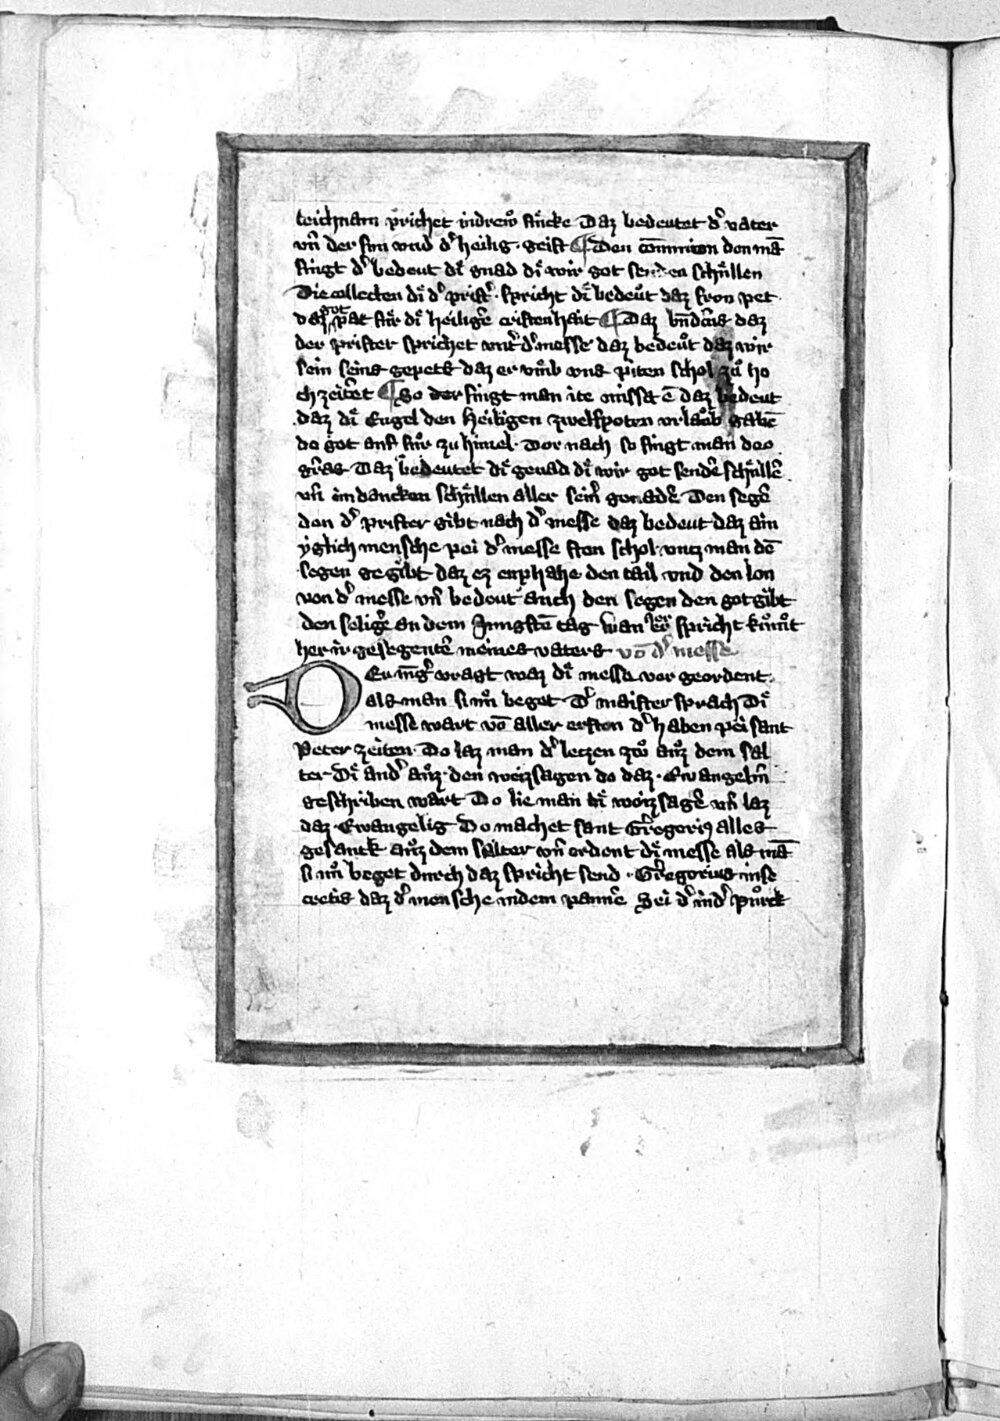 leichnam prichet indrew̆ stu̍cke Daz bedeutet d᷑ vater
vn̄ der sun vnd d᷑ heilig · geist ¶ Den com̄union den mā
singt d᷑ bedeut di̍ gnad di̍ wir got senden schu̍llen
Die collecten di̍ d᷑ prist᷑ · spricht di̍ bedeůt daz fron pet
daz got pat fu̍r di̍ heilige᷑ cristenhait ¶ Daz daz
der prister sprichet vnt᷑ d᷑ messe daz bedeůt daz wir
sein seins gepets daz er vm̄b vns piten schol zů ho
chzeite᷑t ¶ So der singt man ite missa ē daz bedeut
daz di̍ Engel den heiligen zwelfpoten vrlaůb gabē
do got auf fůr zu himel · Dor nach so singt man deo
gr̄as Daz bedeutet di̍ genad di̍ wir got sendē schu̍llē
vn̄ im dancken schu̍llen aller sein᷑ genadē Den segē
den d᷑ prister gibt nach d᷑ messe daz bedeut daz ain
yglich mensche pei d᷑ messe sten schol vntz man dē
segen ge gibt daz ez enphahe den tail vnd den lon
von d᷑ messe vn̄ bedeut auch den segen den got gibt
den selige᷑ an dem Jungstē tag wan er spricht kůmt
her ir gesegente᷑ meines vaters võ d᷑ messe
DEr iung᷑ vragt waz di̍ messe vor geordent
als man si nů beget D᷑ maister sprach Di̍
messe wart võ aller ersten d᷑ haben pei sant
Peter zeiten · Do laz man d᷑ letzen zwů auz dem sal
ter · Di̍ and᷑ auz · den weizsagen do daz · Ewangelin̄
geschriben wart Do lie man di̍ weizsage᷑ vn̄ laz
daz · Ewangelig Do machet sant Gregorius alles
gesank auz dem salter vn̄ ordent di̍ messe als mā
si nů beget durch daz spricht send · Gregorius in se
cretis daz d᷑ mensche indem panne Sei d᷑ ind᷑ půrck